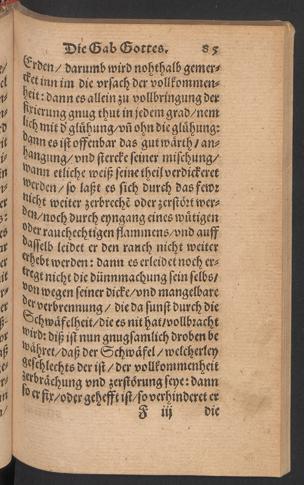 Die Gab Gottes. 85
Erden / darumb wird nohthalb gemer-
cket inn im die vrsach der vollkommen-
heit: dann es allein zu vollbringung der
figierung gnug thut in jedem grad / nem
lich mit d' glühung / vñ ohn die glühung:
dann es ist offenbar das gut wärth / an-
hangung / vnd stercke seiner mischung /
wann etliche weiß seine theil verdickeret
werden / so laßt es sich durch das fewr
nicht weiter zerbrechẽ oder zerstört wer-
den / noch durch eyngang eines wütigen
oder rauchechtigen flammens / vnd auff
dasselb leidet er den rauch nicht weiter
erhebt werden: dann es erleidet noch er-
tregt nicht die dünnmachung sein selbs /
von wegen seiner dicke / vnd mangelbare
der verbrennung / die da sunst durch die
Schwäfelheit / die es nit hat / vollbracht
wird: diß ist nun gnugsamlich droben be
währet / daß der Schwäfel / welcherley
geschlechts der ist / der vollkommenheit
zerbrächung vnd zerstörung seye: dann
so er fix / oder gehefft ist / so verhinderet er
F iij die